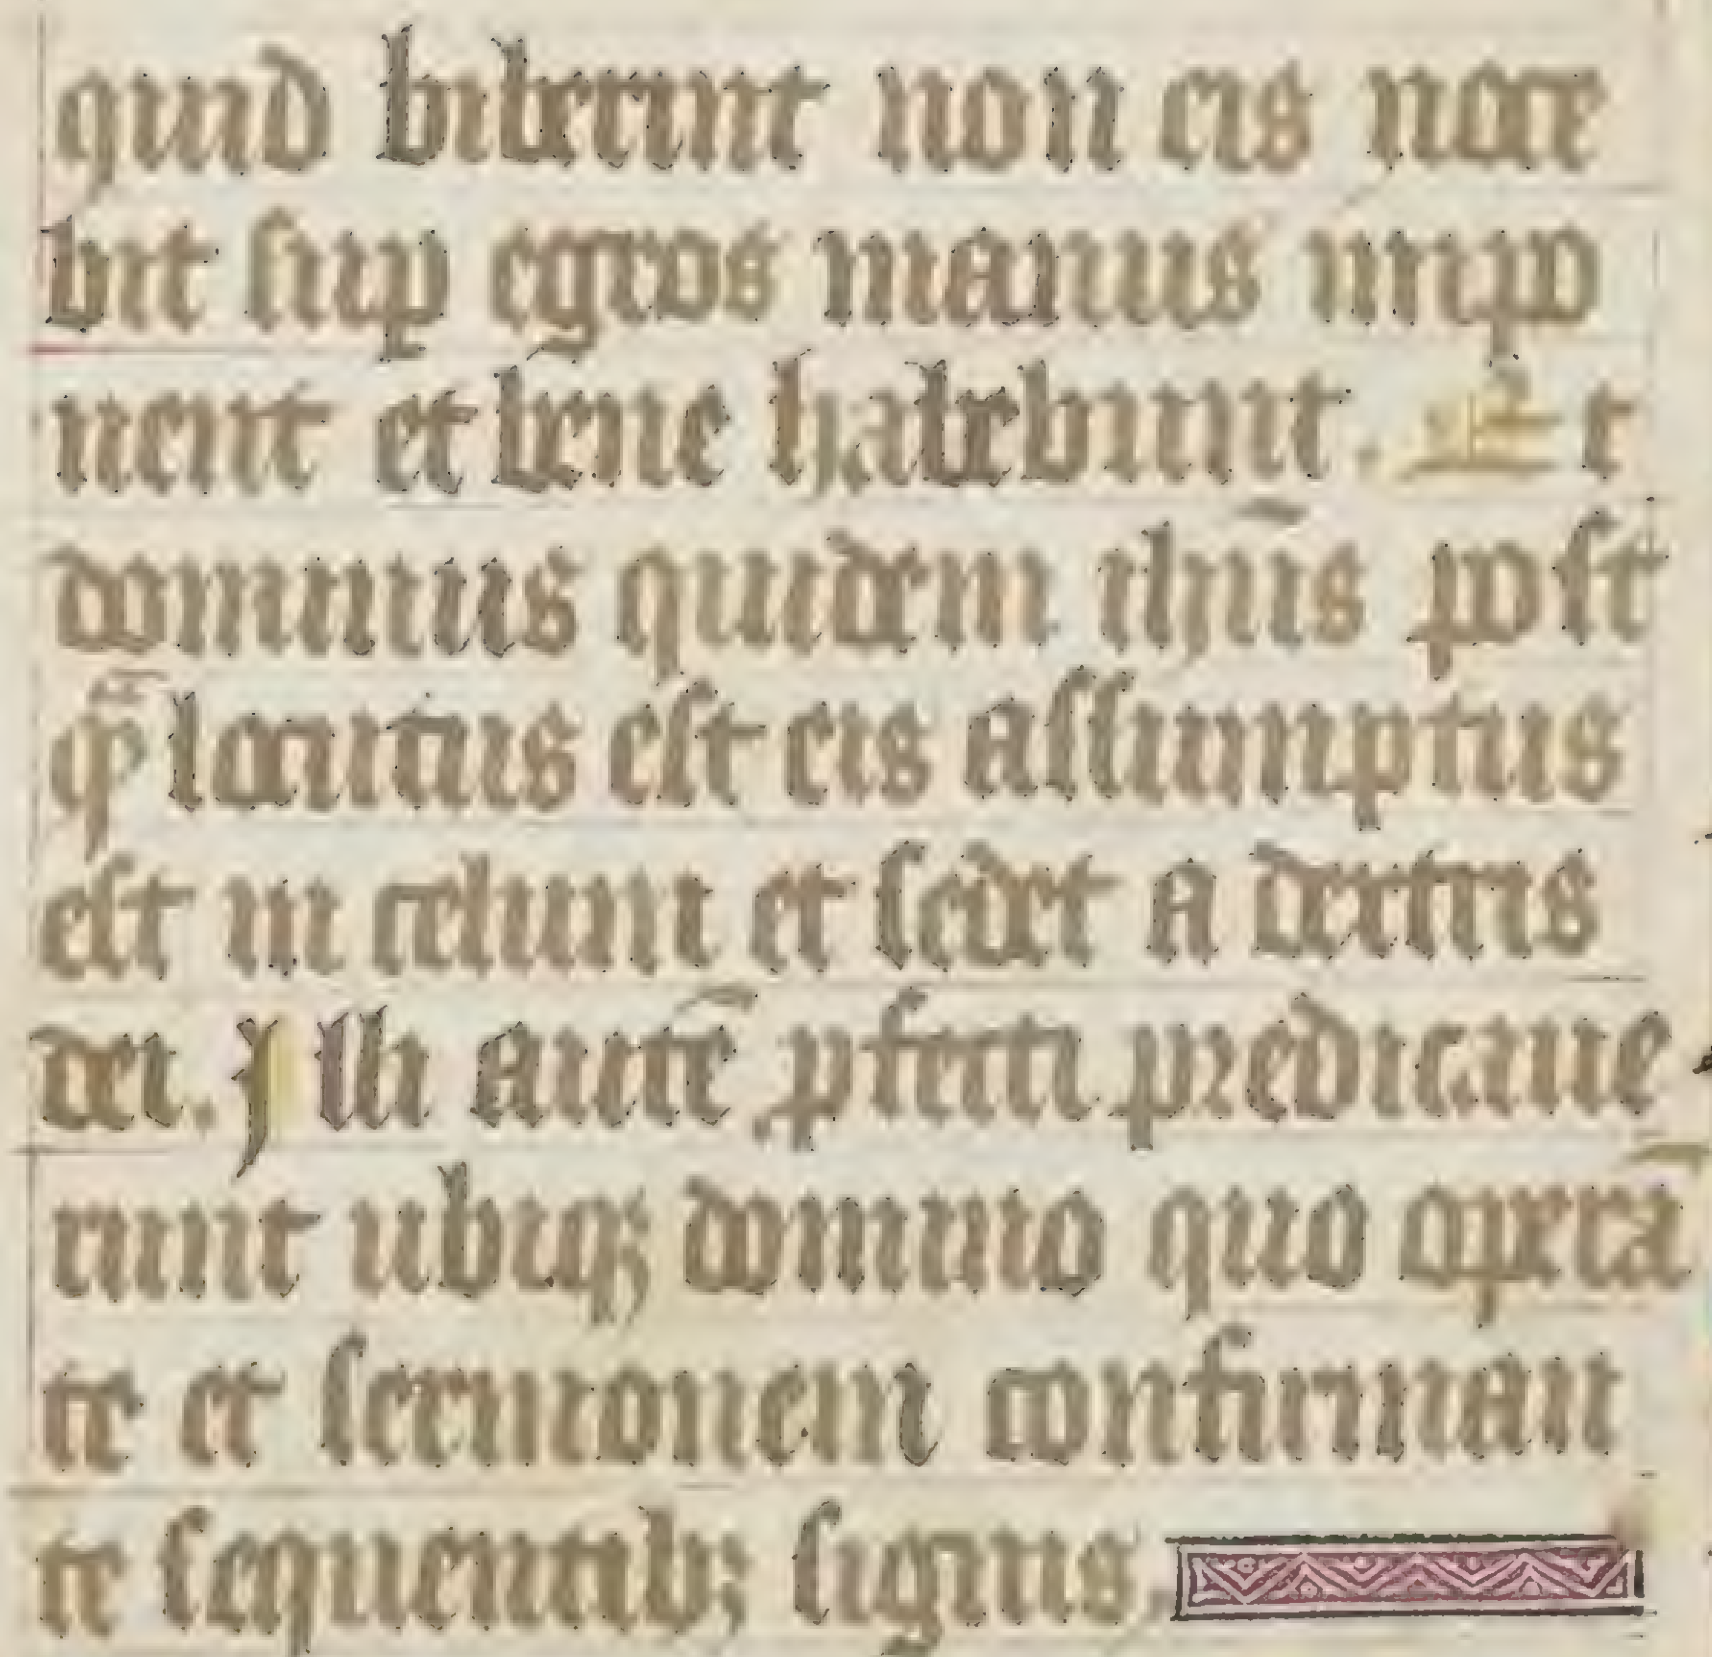 quid biberint non eis noce
bit sup egros manus inpo
nent et bene habebunt. Et
dominus quidem ihūs post
q̄ locutus est eis assumptus
est in celum et sedet a dextris
dei. Illi autē pfecti predicaue
runt ubiq; domino quo operā
te et sermonem confirman
te sequentib; signis.